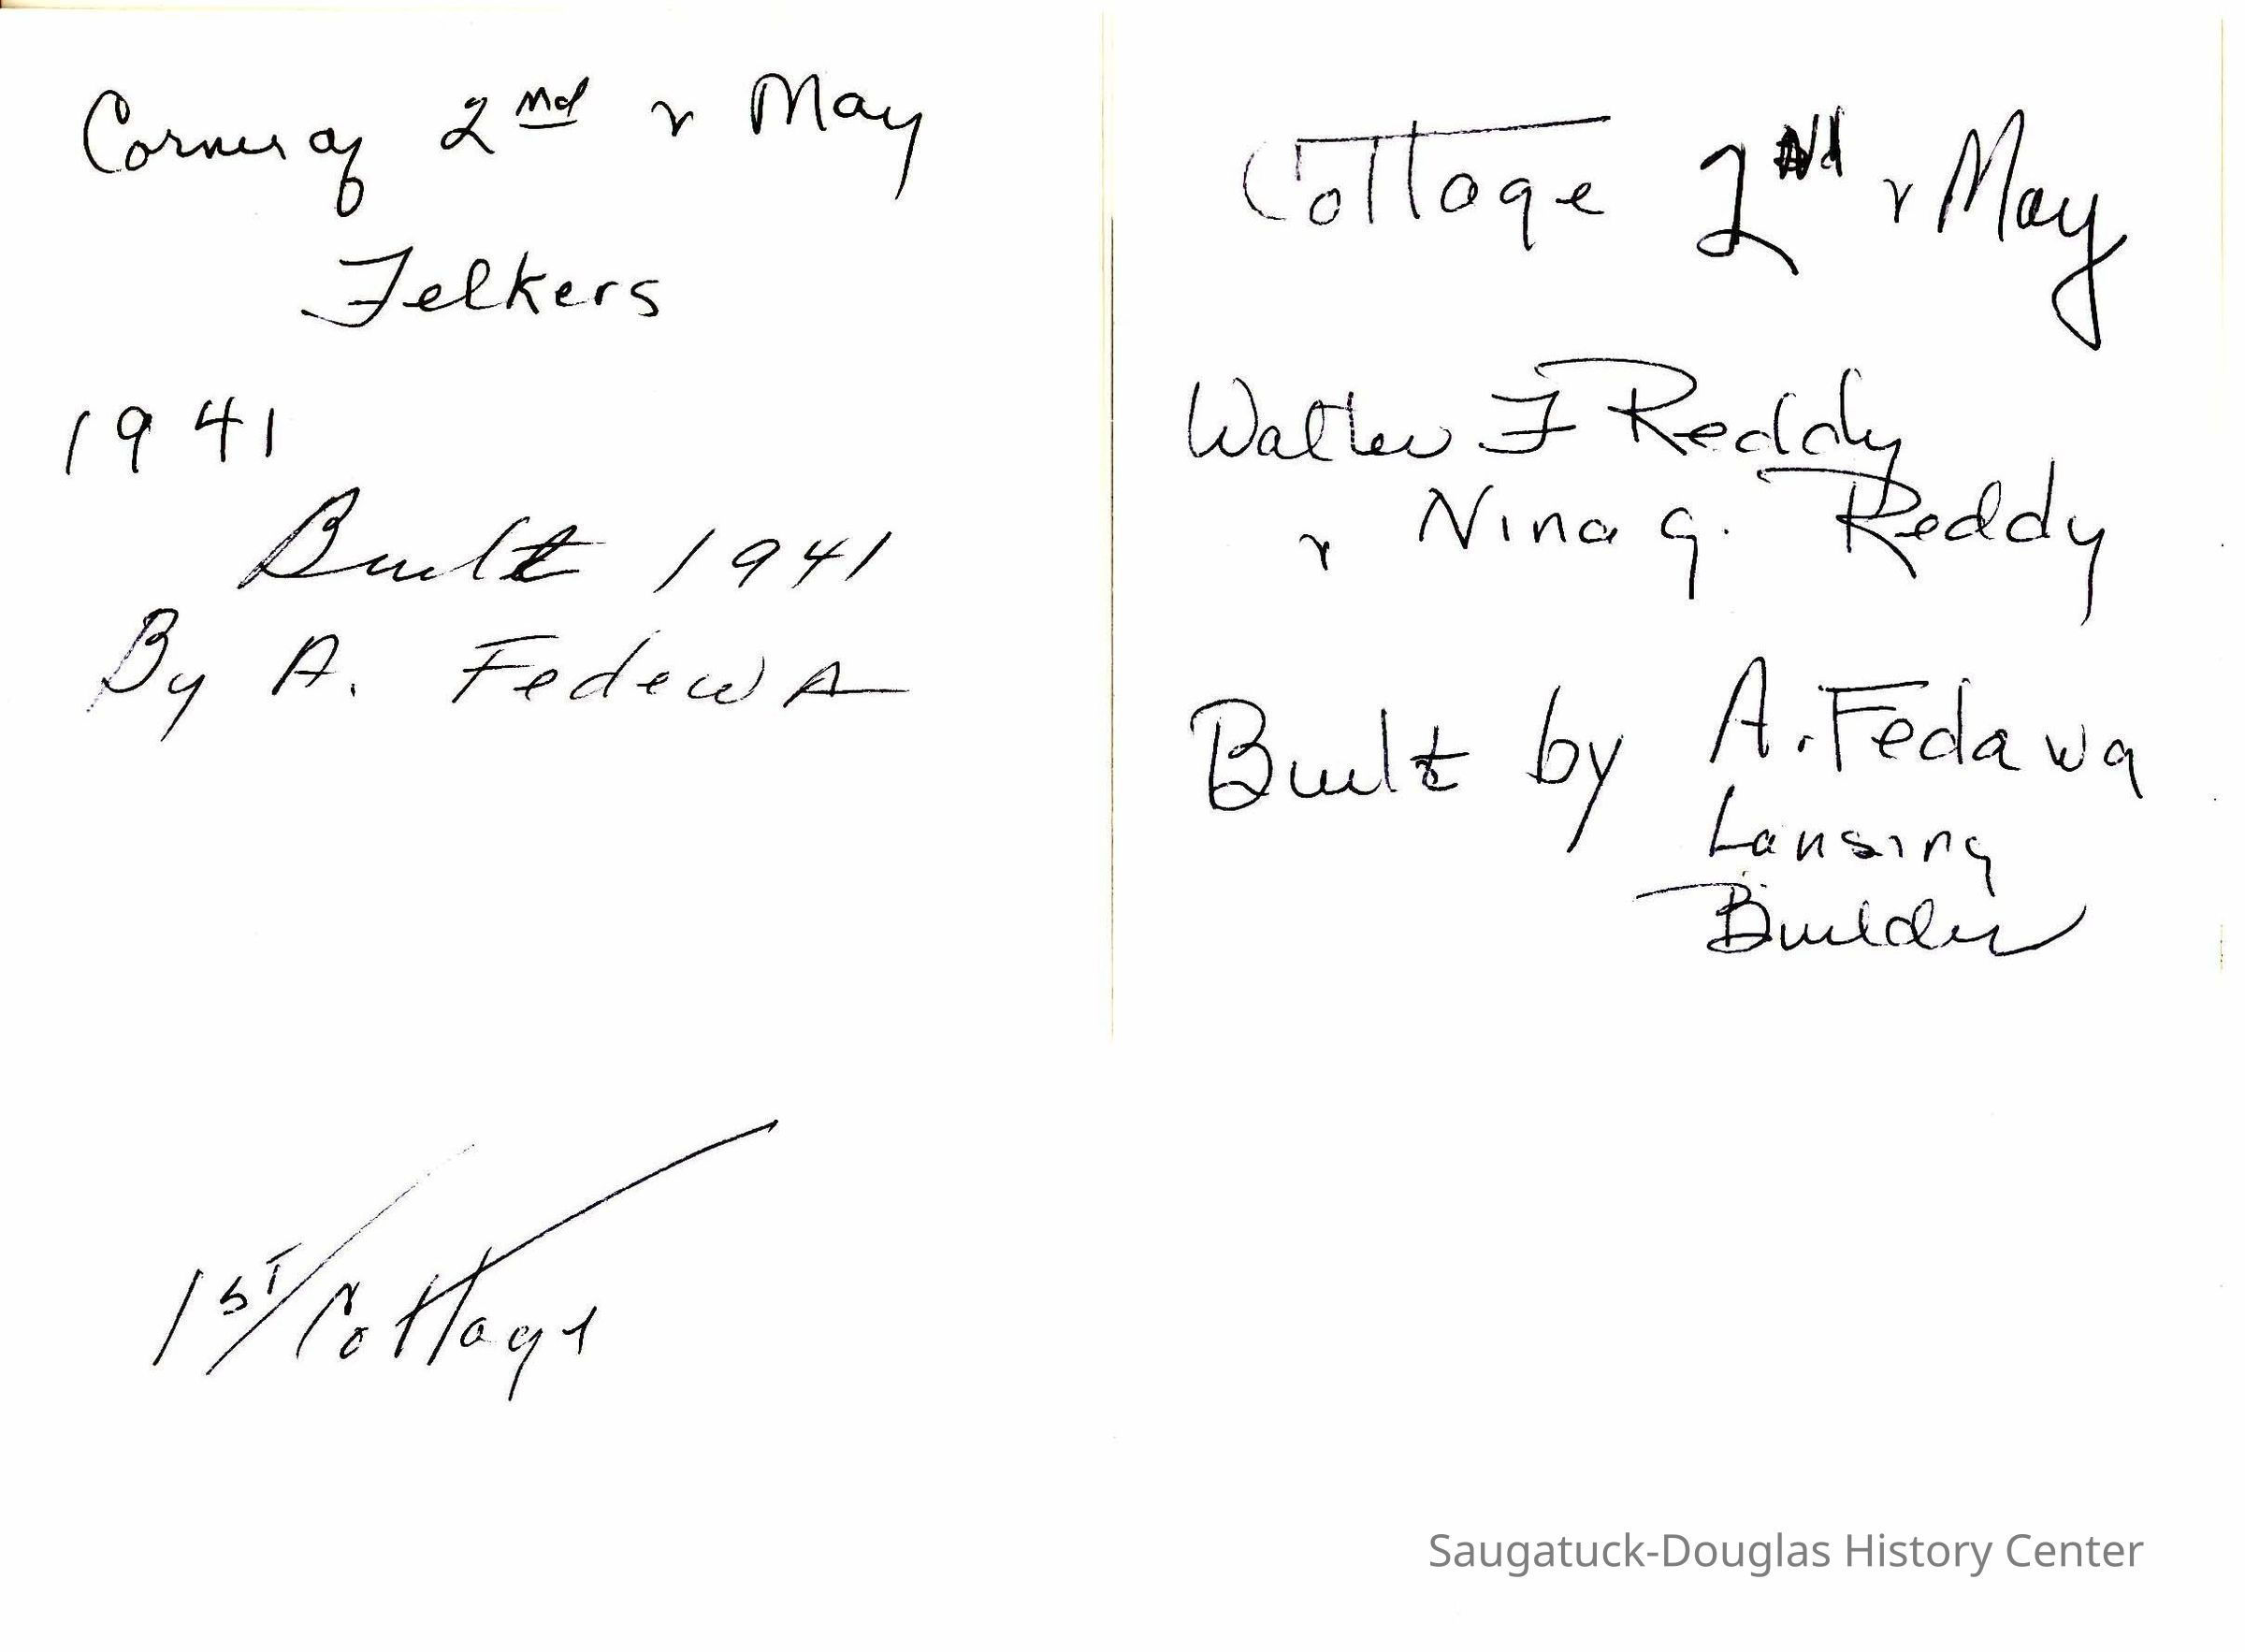 Corner of 2nd & May
Felkers
1941
Built 1941
By A. Fedewa
1st Cottage
Cottage 2nd & May
Walter F Reddy
& Nina G. Reddy
Built by A. Fedawa
Lansing
Builder
Saugatuck-Douglas History Center